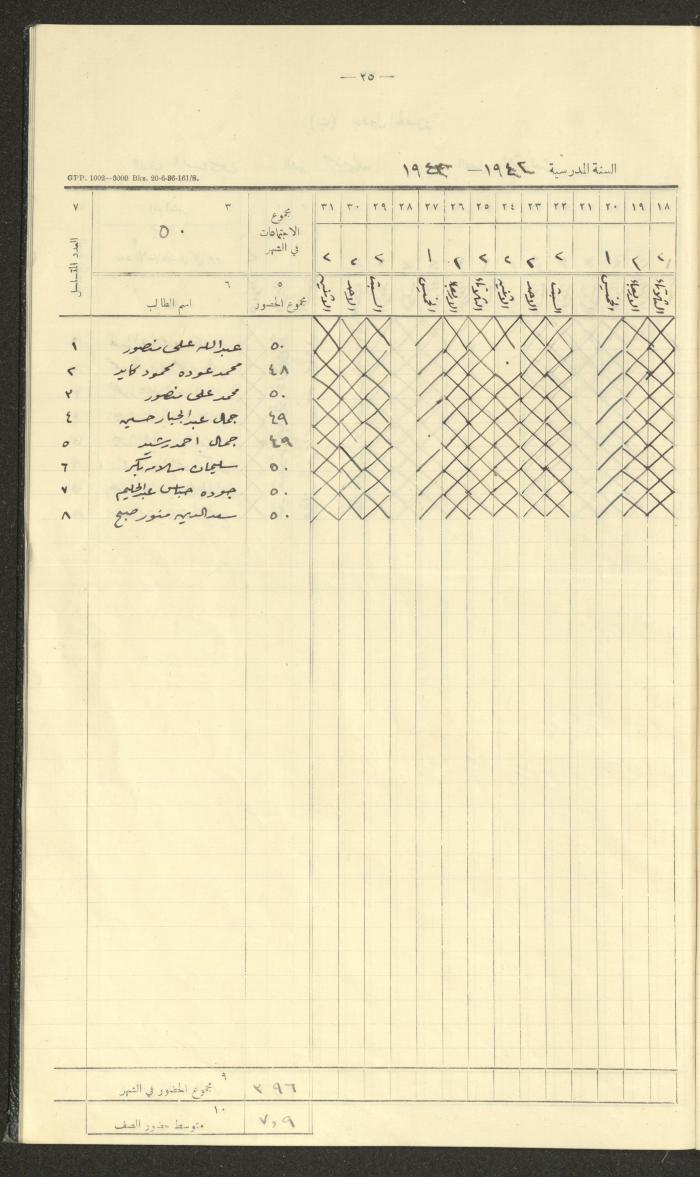 — ٢٥ —
السنة المدرسية ١٩٤٢ — ١٩٤٣
GPP. 1002—3000 Bks. 20-6-36-161/S.
١٨ ١٩ ٢٠ ٢١ ٢٢ ٢٣ ٢٤ ٢٥ ٢٦ ٢٧ ٢٨ ٢٩ ٣٠ ٣١ مجموع الاجتماعات في الشهر ٣ ٥٠ ٧ العدد المتسلسل
٢ ٢ ١ ٢ ٢ ٢ ٢ ٢ ١ ٢ ٢ ٢
الثلاثاء الاربعاء الخميس السبت الاحد الاثنين الثلاثاء الاربعاء الخميس السبت الاحد الاثنين ٥ مجموع الحضور ٦ اسم الطالب
٥٠ عبدالله علي منصور ١
٤٨ محمد عوده محمود كايد ٢
٥٠ محمد علي منصور ٣
٤٩ جمال عبد الجبار حسين ٤
٤٩ جمال احمد رشيد ٥
٥٠ سليمان سلامه بكر ٦
٥٠ جوده عباس عبد الحليم ٧
٥٠ سعد الدين منور صبح ٨
٣٩٦ ٩ مجموع الحضور في الشهر
٧,٩ ١٠ متوسط حضور الصف